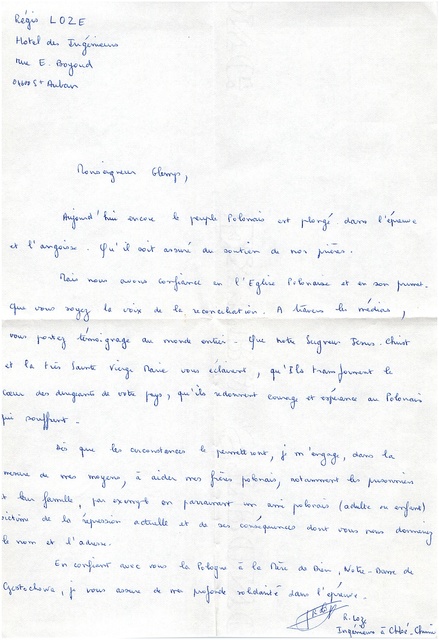 Régis LOZE
Hotel des Ingénieurs
rue E. Boyoud
04600 St Auban
Monseigneur Glemp,
Aujourd'hui encore le peuple Polonais est plongé dans l'épreuve
et l'angoisse. Qu'il soit assuré du soutien de nos prières.
Mais nous avons confiance en l'Eglise Polonaise et en son primat.
Que vous soyez la voix de la reconciliation. A travers les médias,
vous portez témoignage au monde entier. Que notre Seigneur Jesus-Christ
et la très Sainte Vierge Marie vous éclairent, qu'Ils transforment le
cœur des dirigeants de votre pays, qu'ils redonnent courage et espérance au Polonais
qui souffrent.
Dès que les circonstances le permettront, je m'engage, dans la
mesure de mes moyens, à aider mes frères polonais, notamment les prisonniers
et leur famille, par exemple en parrainant un ami polonais (adulte ou enfant)
victime de la répression actuelle et de ses conséquences dont vous nous donneriez
le nom et l'adresse.
En confiant avec vous la Pologne à la Mère de Dieu, Notre-Dame de
Czestochowa, je vous assure de ma profonde solidarité dans l'épreuve.
R. Loze
Ingénieur à Chloé-Chimie